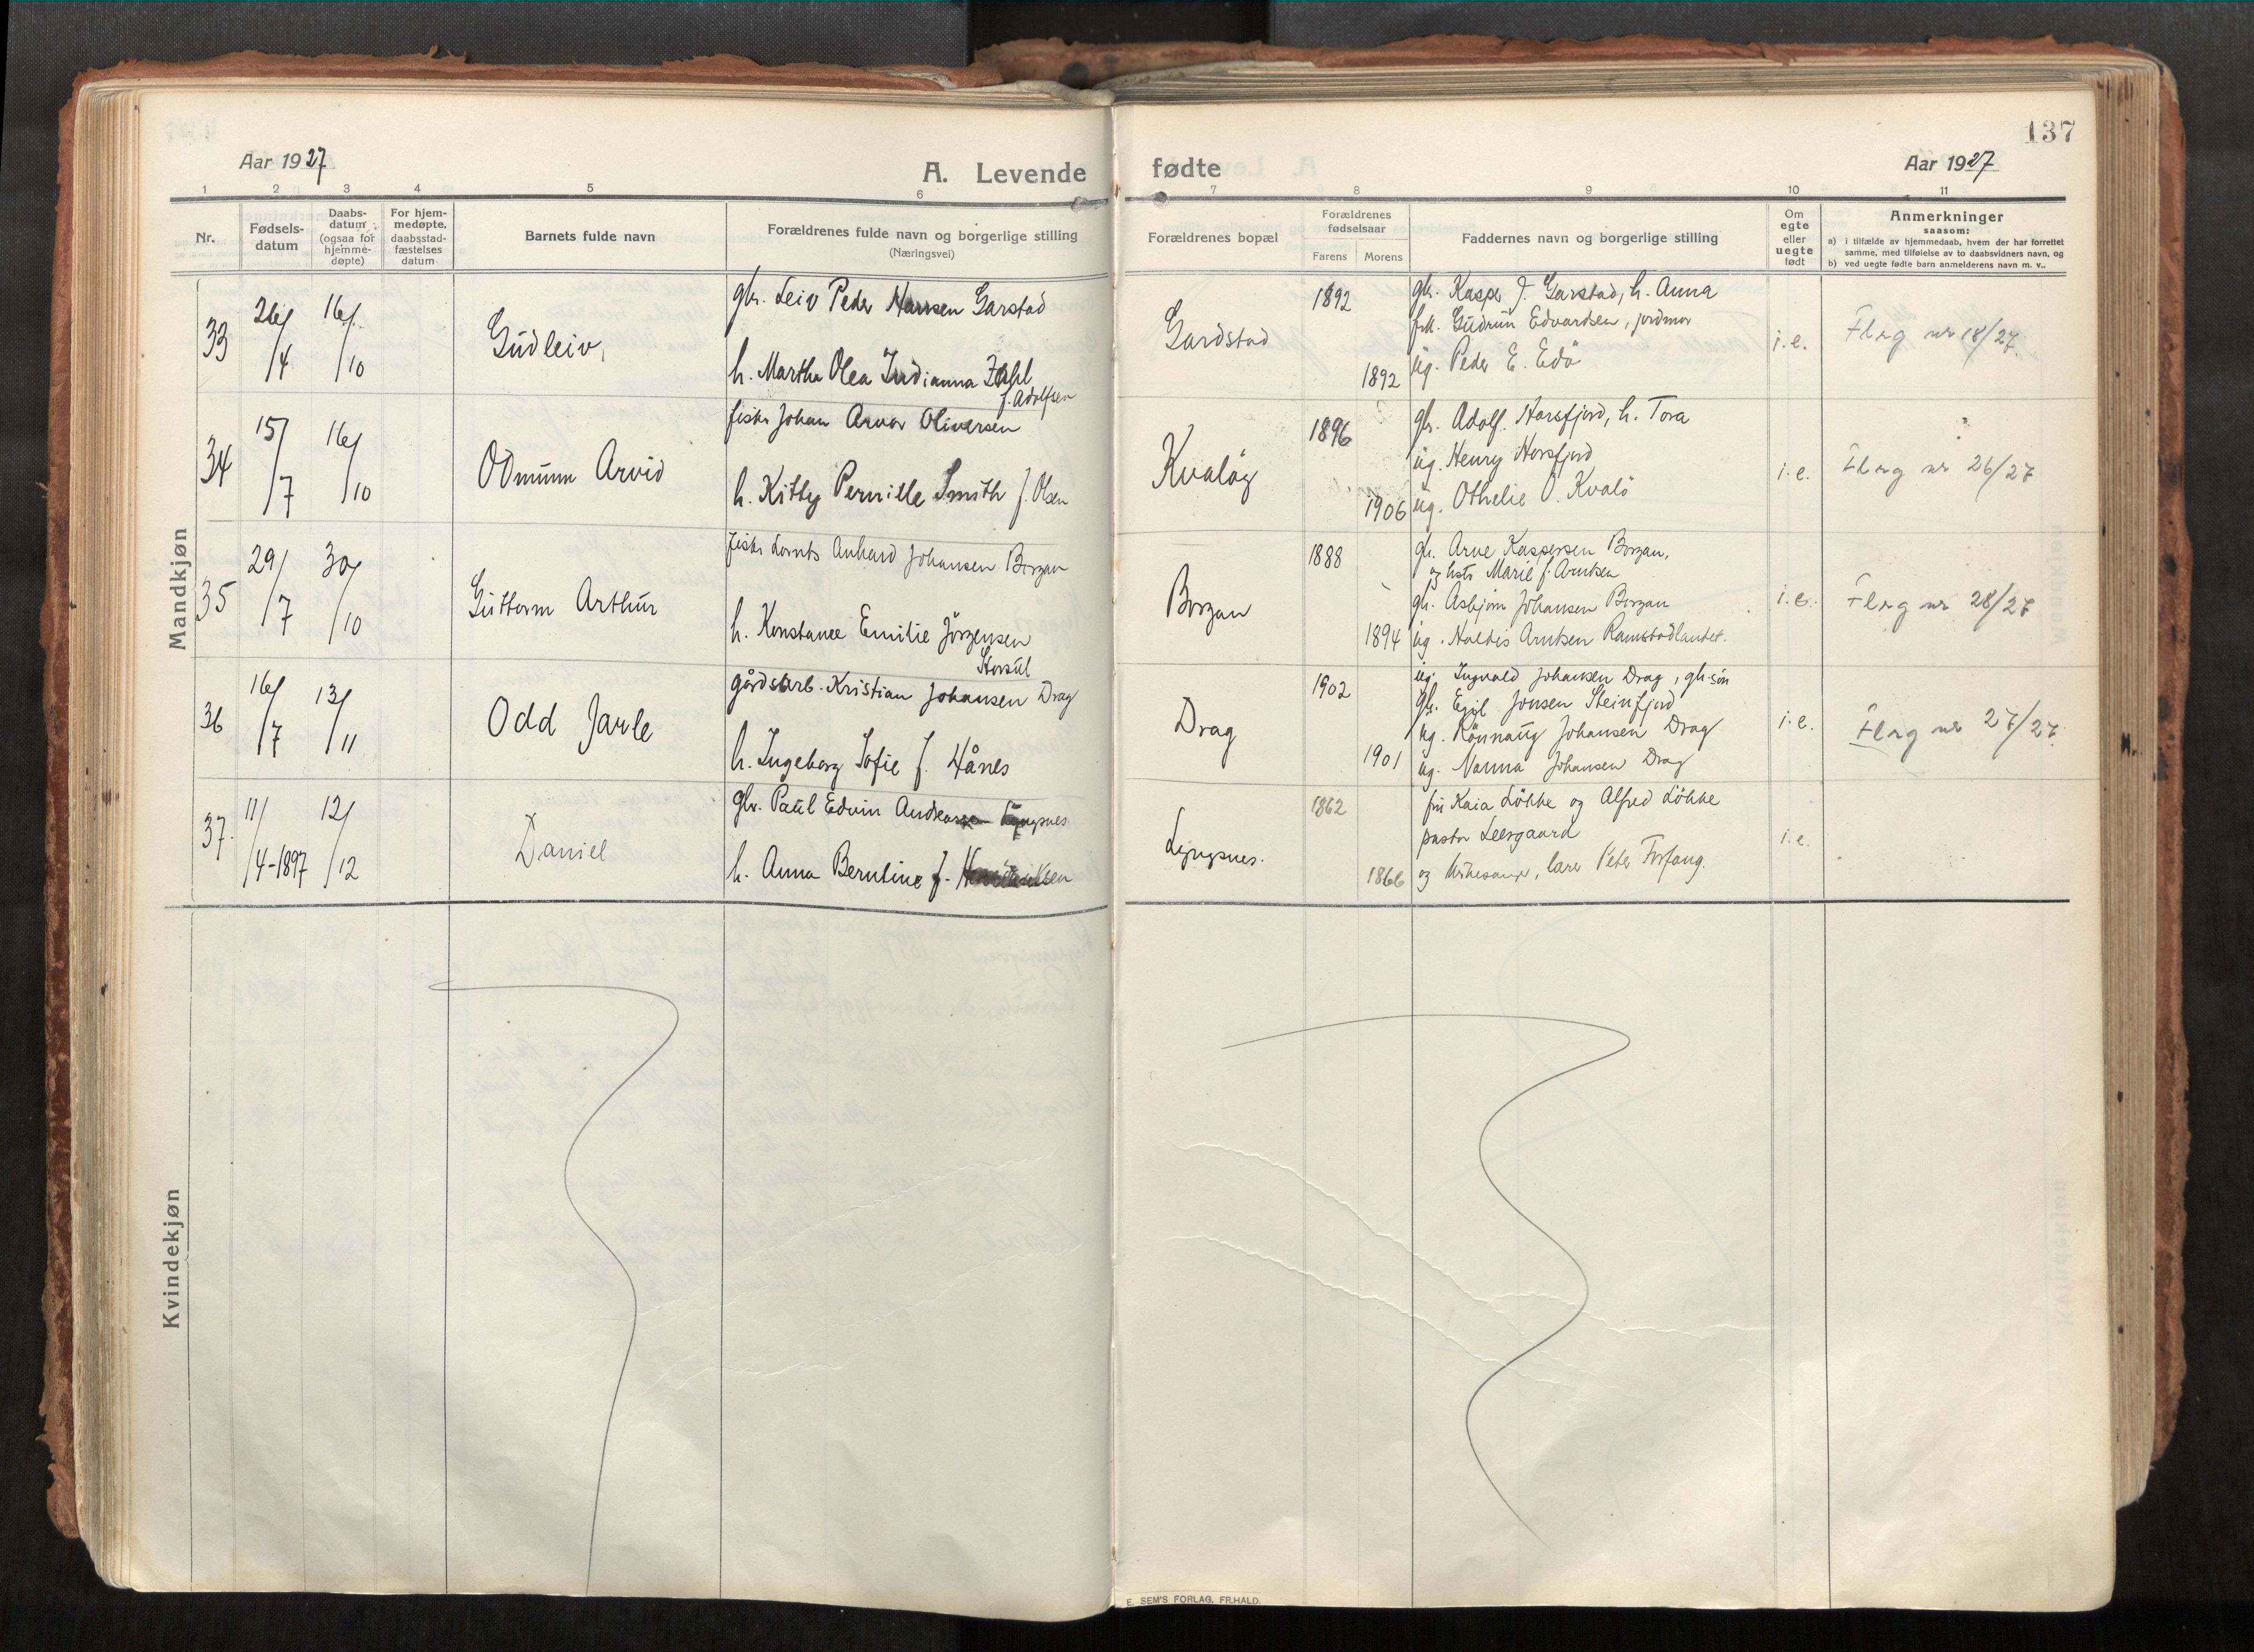 137
Aar 1927
A. Levende fødte
Aar 1927
1 2 3 4 5 6 7 8 9 10 11
Nr.
Fødsels-
datum
Daabs-
datum
(ogsaa for
hjemme-
døpte)
For hjem-
medøpte,
daabsstad-
fæstelses
datum
Barnets fulde navn
Forældrenes fulde navn og borgerlige stilling
(Næringsvei)
Forældrenes bopæl
Forældrenes
fødselsaar
Farens Morens
Faddernes navn og borgerlige stilling
Om
egte
eller
uegte
født
Anmerkninger
saasom:
a) i tilfælde av hjemmedaab, hvem der har forrettet
samme, med tilføielse av to daabsvidners navn, og
b) ved uegte fødte barn anmelderens navn m. v..
Mandkjøn
33
26/4
16/10
Gudleiv,
gbr. Leiv Peder Hansen Garstad
h. Martha Olea Indianna Zahl
f. Adolfsen
Gardstad
1892
1892
gbr. Kasper J. Garstad, h. Anna
frk. Gudrun Edvardsen, jordmor
ug. Peder E. Edö
i.e.
Flag nr 18/27.
34
15/7
16/10
Odmunn Arvid
fisker Johan Arvor Oliversen
h. Kitty Pernille Smith f. Olsen
Kvalöy
1896
1906
gbr. Adolf Horsfjord, h. Tora
ug. Henry Horsfjord
ug. Othelie O. Kvalö
i.e.
Flag nr 26/27
35
29/7
30/10
Guttorm Arthur
fisker Lornts Anhard Johansen Borgan
h. Konstance Emilie Jörgensen
Storsul
Borgan
1888
1894
gbr. Arne Kaspersen Borgan,
og hstr Marie f. Arntsen
gbr. Asbjørn Johansen Borgan
ug. Haldis Arntsen Ramstadlandet.
i.e.
Flag nr 28/27
36
16/7
13/11
Odd Jarle
gårdsarb. Kristian Johansen Drag
h. Ingeborg Sofie f. Hånes
Drag
1902
1901
ug. Ingvald Johansen Drag, gbr.sön
gbr. Egil Jonsen Steinfjord
ug. Rönnaug Johansen Drag
ug. Nanna Johansen Drag
i.e.
Flag nr 27/27.
37.
11/4-1897
12/12
Daniel
gbr. Paul Edvin Andreassen Lyngsnes
h. Anna Berntine f.
Lyngsnes.
1862
1866
fru Kaia Løkke og Alfred Løkke
pastor Leergaard
og kirkesanger, lærer Peter Forfang.
i.e.
Kvindekjøn
E. SEM'S FORLAG, FR.HALD.